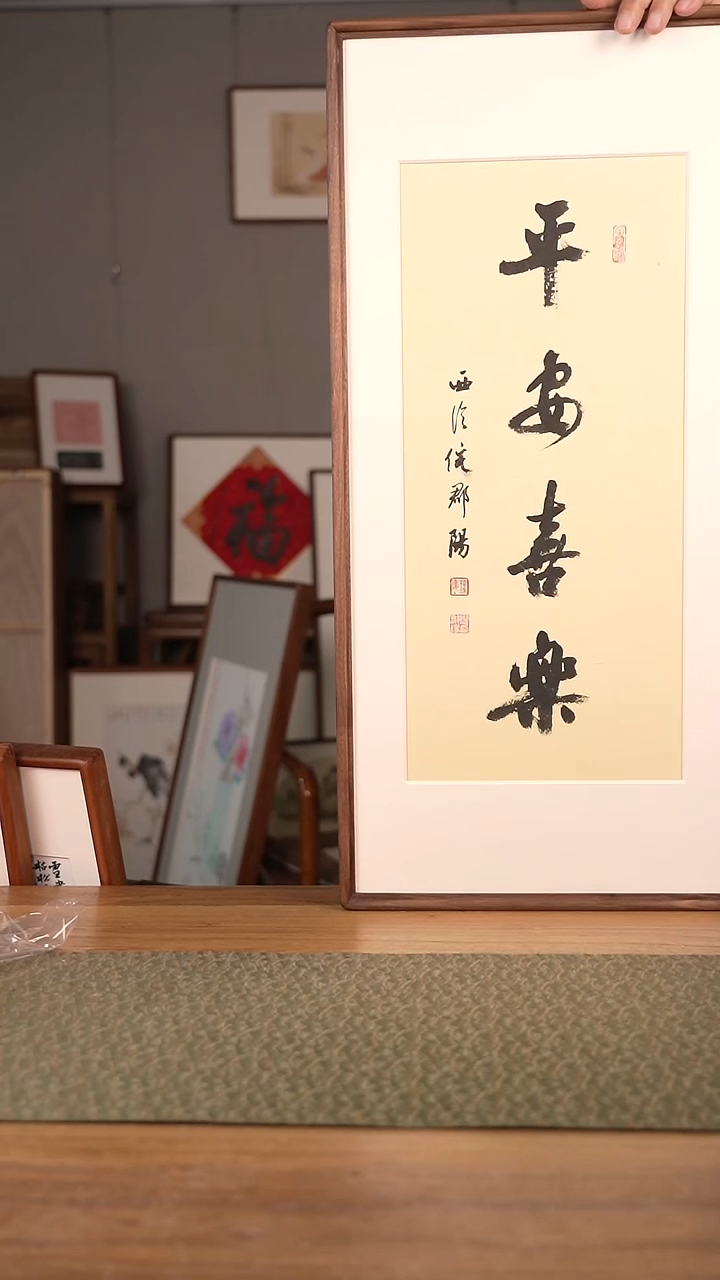 平安喜樂
西泠侯郡陽
福